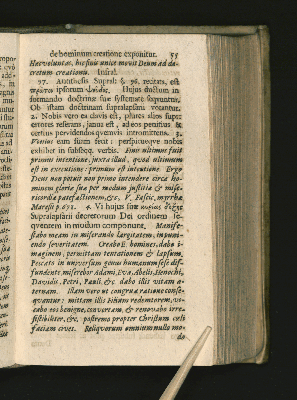 de hominum creatione exponitur. 55
Hæc voluntas, hæc fuit unica movis Deum ad de-
cretum creationis. Infra.
27. Antithesis Supral: §. 26. recitata, est
πρῶτον ipsorum ψεῦδος. Hujus ductum in
formando doctrinæ suæ systemate sequuntur,
Ob istam doctrinam supralapsarii vocantur.
2. Nobis vero ea clavis est, plures alios super
errores referans, janua est, ad eos penitius &
certius pervidendos quæ nobis intromittens. 3.
Verius eam sum fecit: perspicueque nobis
exhibet in subseq. verbis. Finis ultimus fuit
primus intentione, juxta illud, quod ultimum
est in executione: primum est intentione. Ergo
Deus non potuit non primo intendere circa ho-
minem gloria sua per modum justitiæ & mise-
ricordiæ patefactionem, &c, V. Fascic. myrrhæ
Maresii p. 672. 4. Vi hujus suæ
Supralapsarii decretorum Dei ordinem se-
quentem in modum componunt. Manife-
stabo meam in miserando largitatem, in puni-
endo severitatem. Creabo E. homines, dabo i-
maginem, permittam tentationem & lapsum,
Peccato in universum genus humanum sese dif-
fundente miserebor Adami, Evæ, Abelis, Henochi,
Davidis, Petri, Pauli, &c. dabo illis vitam æ-
ternam. Illam vero ut congrua ratione conse-
quantur: mittam illis Filium redemtorem, vo-
cabo eos benigne, convertam, & renovabo irre-
sistibiliter, &c. postremo propter Christum cæli
faciam cives. Reliquorum omnium nullo mo-
do